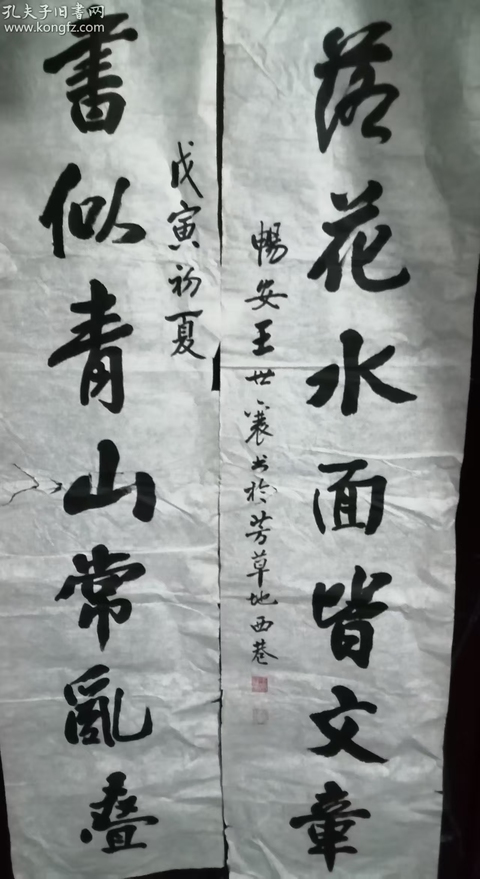 孔夫子旧书网
www.kongfz.com
落花水面皆文章
暢安王世襄书於芳草地西巷
戊寅初夏
書似青山常亂叠